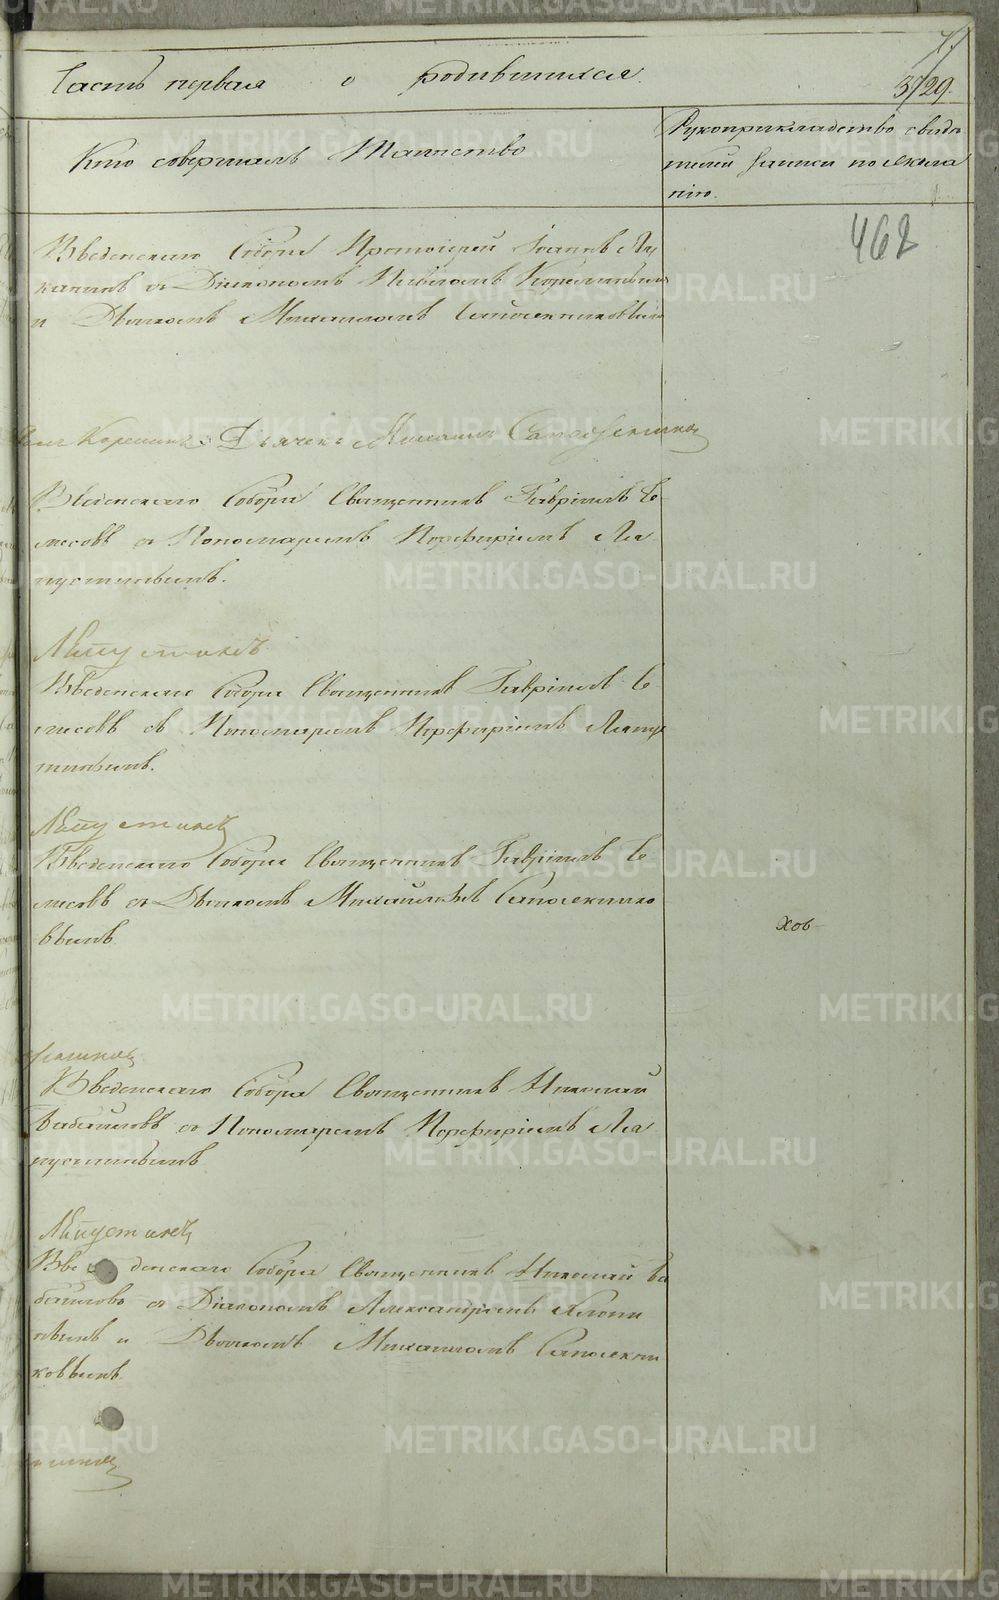 Часть первая о родившихся.
3/29.
Кто совершалъ Таинство
Рукоприкладство свиде
телей записи по жела
нію.
462
Введенскаго Собора Протоіерей Іоаннъ Лу
канинъ съ Діакономъ Павломъ
и Дьячкомъ Михаиломъ Сапожниковымъ
Дьячекъ Михаилъ Сапожников
Введенскаго Собора Священникъ Гавріилъ Со
мосовъ съ Пономаремъ Порфиріемъ Ла
пустинымъ.
Лапустинъ
Введенскаго Собора Священникъ Гавріилъ Со
мосовъ съ Пономаремъ Порфиріемъ Лапус
тинымъ.
Лапустинъ
Введенскаго Собора Священникъ Гавріилъ Со
мосовъ съ Дьячкомъ Михайломъ Сапожнико
вымъ
хов
Введенскаго Собора Священникъ Николай
Бабайловъ съ Пономаремъ Порфиріемъ Ла
пустинымъ
Лапустинъ
Введенскаго Собора Священникъ Николай Ба
байловъ съ Діакономъ Александромъ
и Дьячкомъ Михаиломъ Сапожни
ковымъ
METRIKI.GASO-URAL.RU